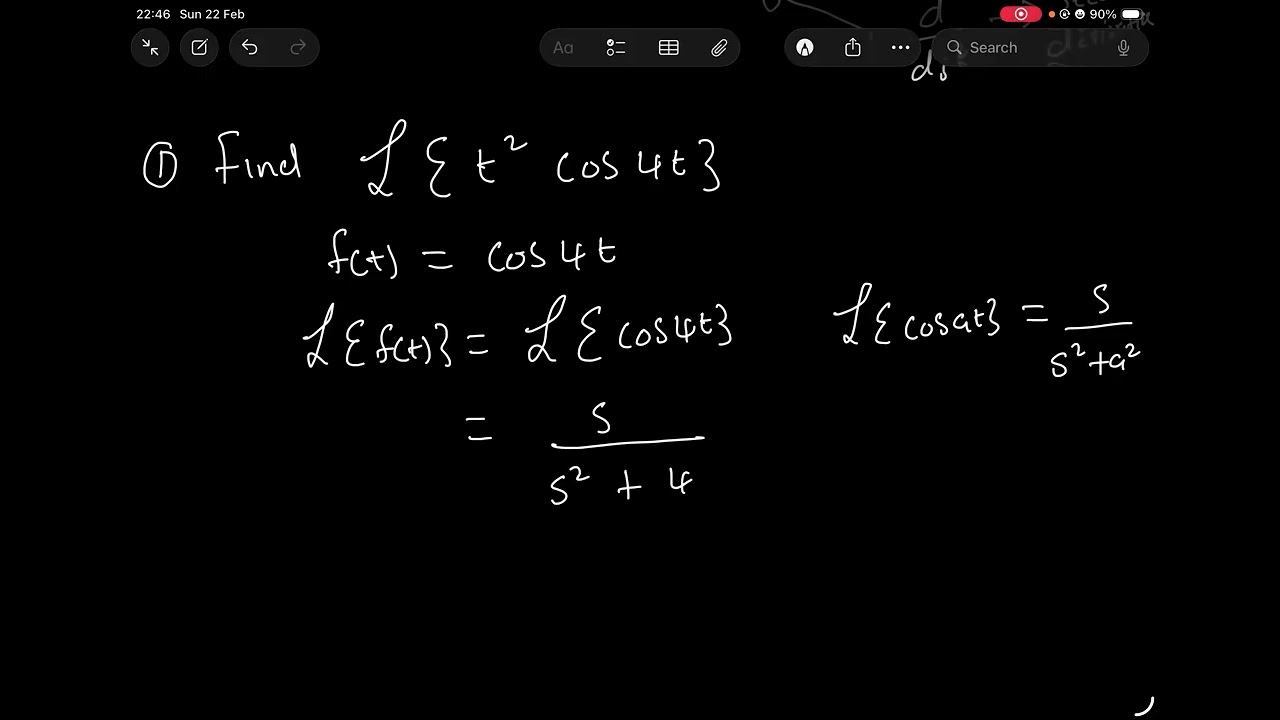 22:46 Sun 22 Feb 90%
d
Aa Search
ds
① Find ℒ{t² cos 4t}
f(t) = cos 4t
ℒ{f(t)} = ℒ{cos4t} ℒ{cosat} = s/(s²+a²)
= s/(s² + 4